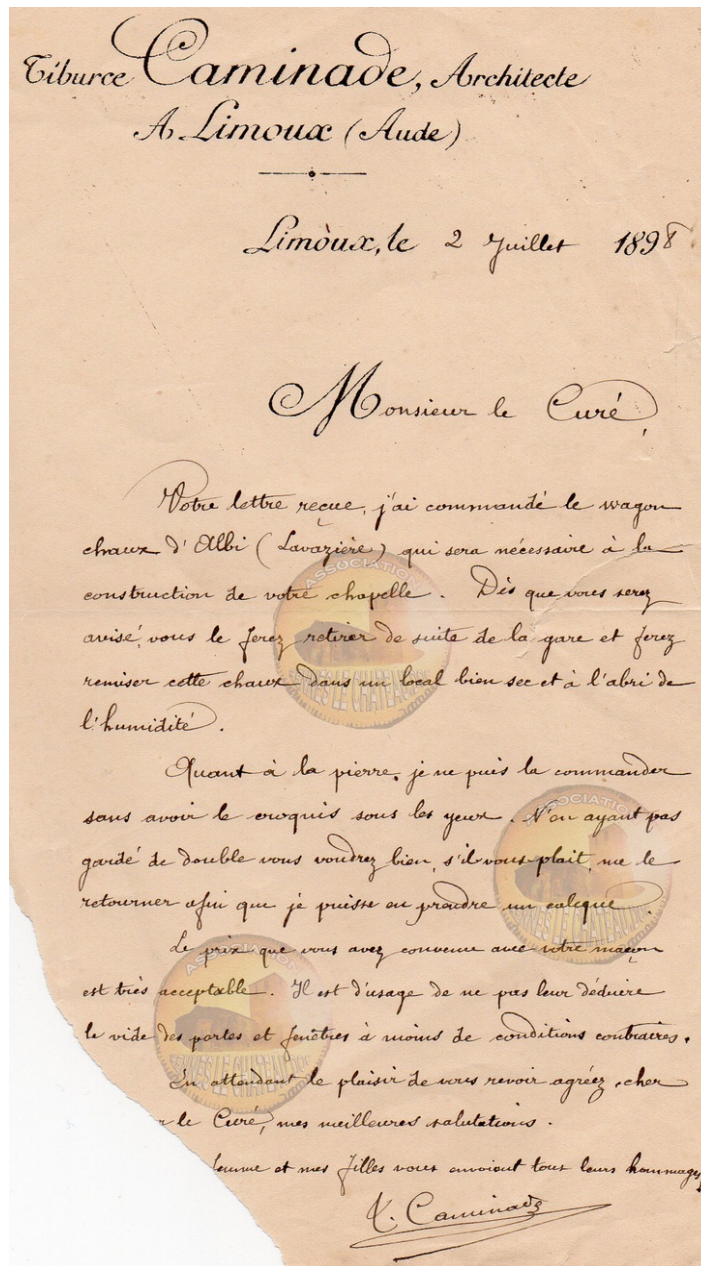 Tiburce Caminade, Architecte
A Limoux (Aude)
Limoux, le 2 Juillet 1898
Monsieur le Curé,
Votre lettre reçue, j'ai commandé le wagon
chaux d'Albi (Lavazière) qui sera nécessaire à la
construction de votre chapelle. Dès que vous serez
avisé, vous le ferez retirer de suite de la gare et ferez
remiser cette chaux dans un local bien sec et à l'abri de
l'humidité.
Quant à la pierre, je ne puis la commander
sans avoir le croquis sous les yeux. N'en ayant pas
gardé de double vous voudrez bien, s'il vous plait, me le
retourner afin que je puisse en prendre un calque.
Le prix que vous avez convenu avec votre maçon
est très acceptable. Il est d'usage de ne pas leur déduire
le vide des portes et fenêtres à moins de conditions contraires.
En attendant le plaisir de vous revoir agréez, cher
r le Curé, mes meilleures salutations.
femme et mes filles vous envoient tous leurs hommages
T. Caminade
ASSOCIATION
RENNES LE CHATEAU.DOC
ASSOCIATION
RENNES LE CHATEAU.DOC
ASSOCIATION
RENNES LE CHATEAU.DOC